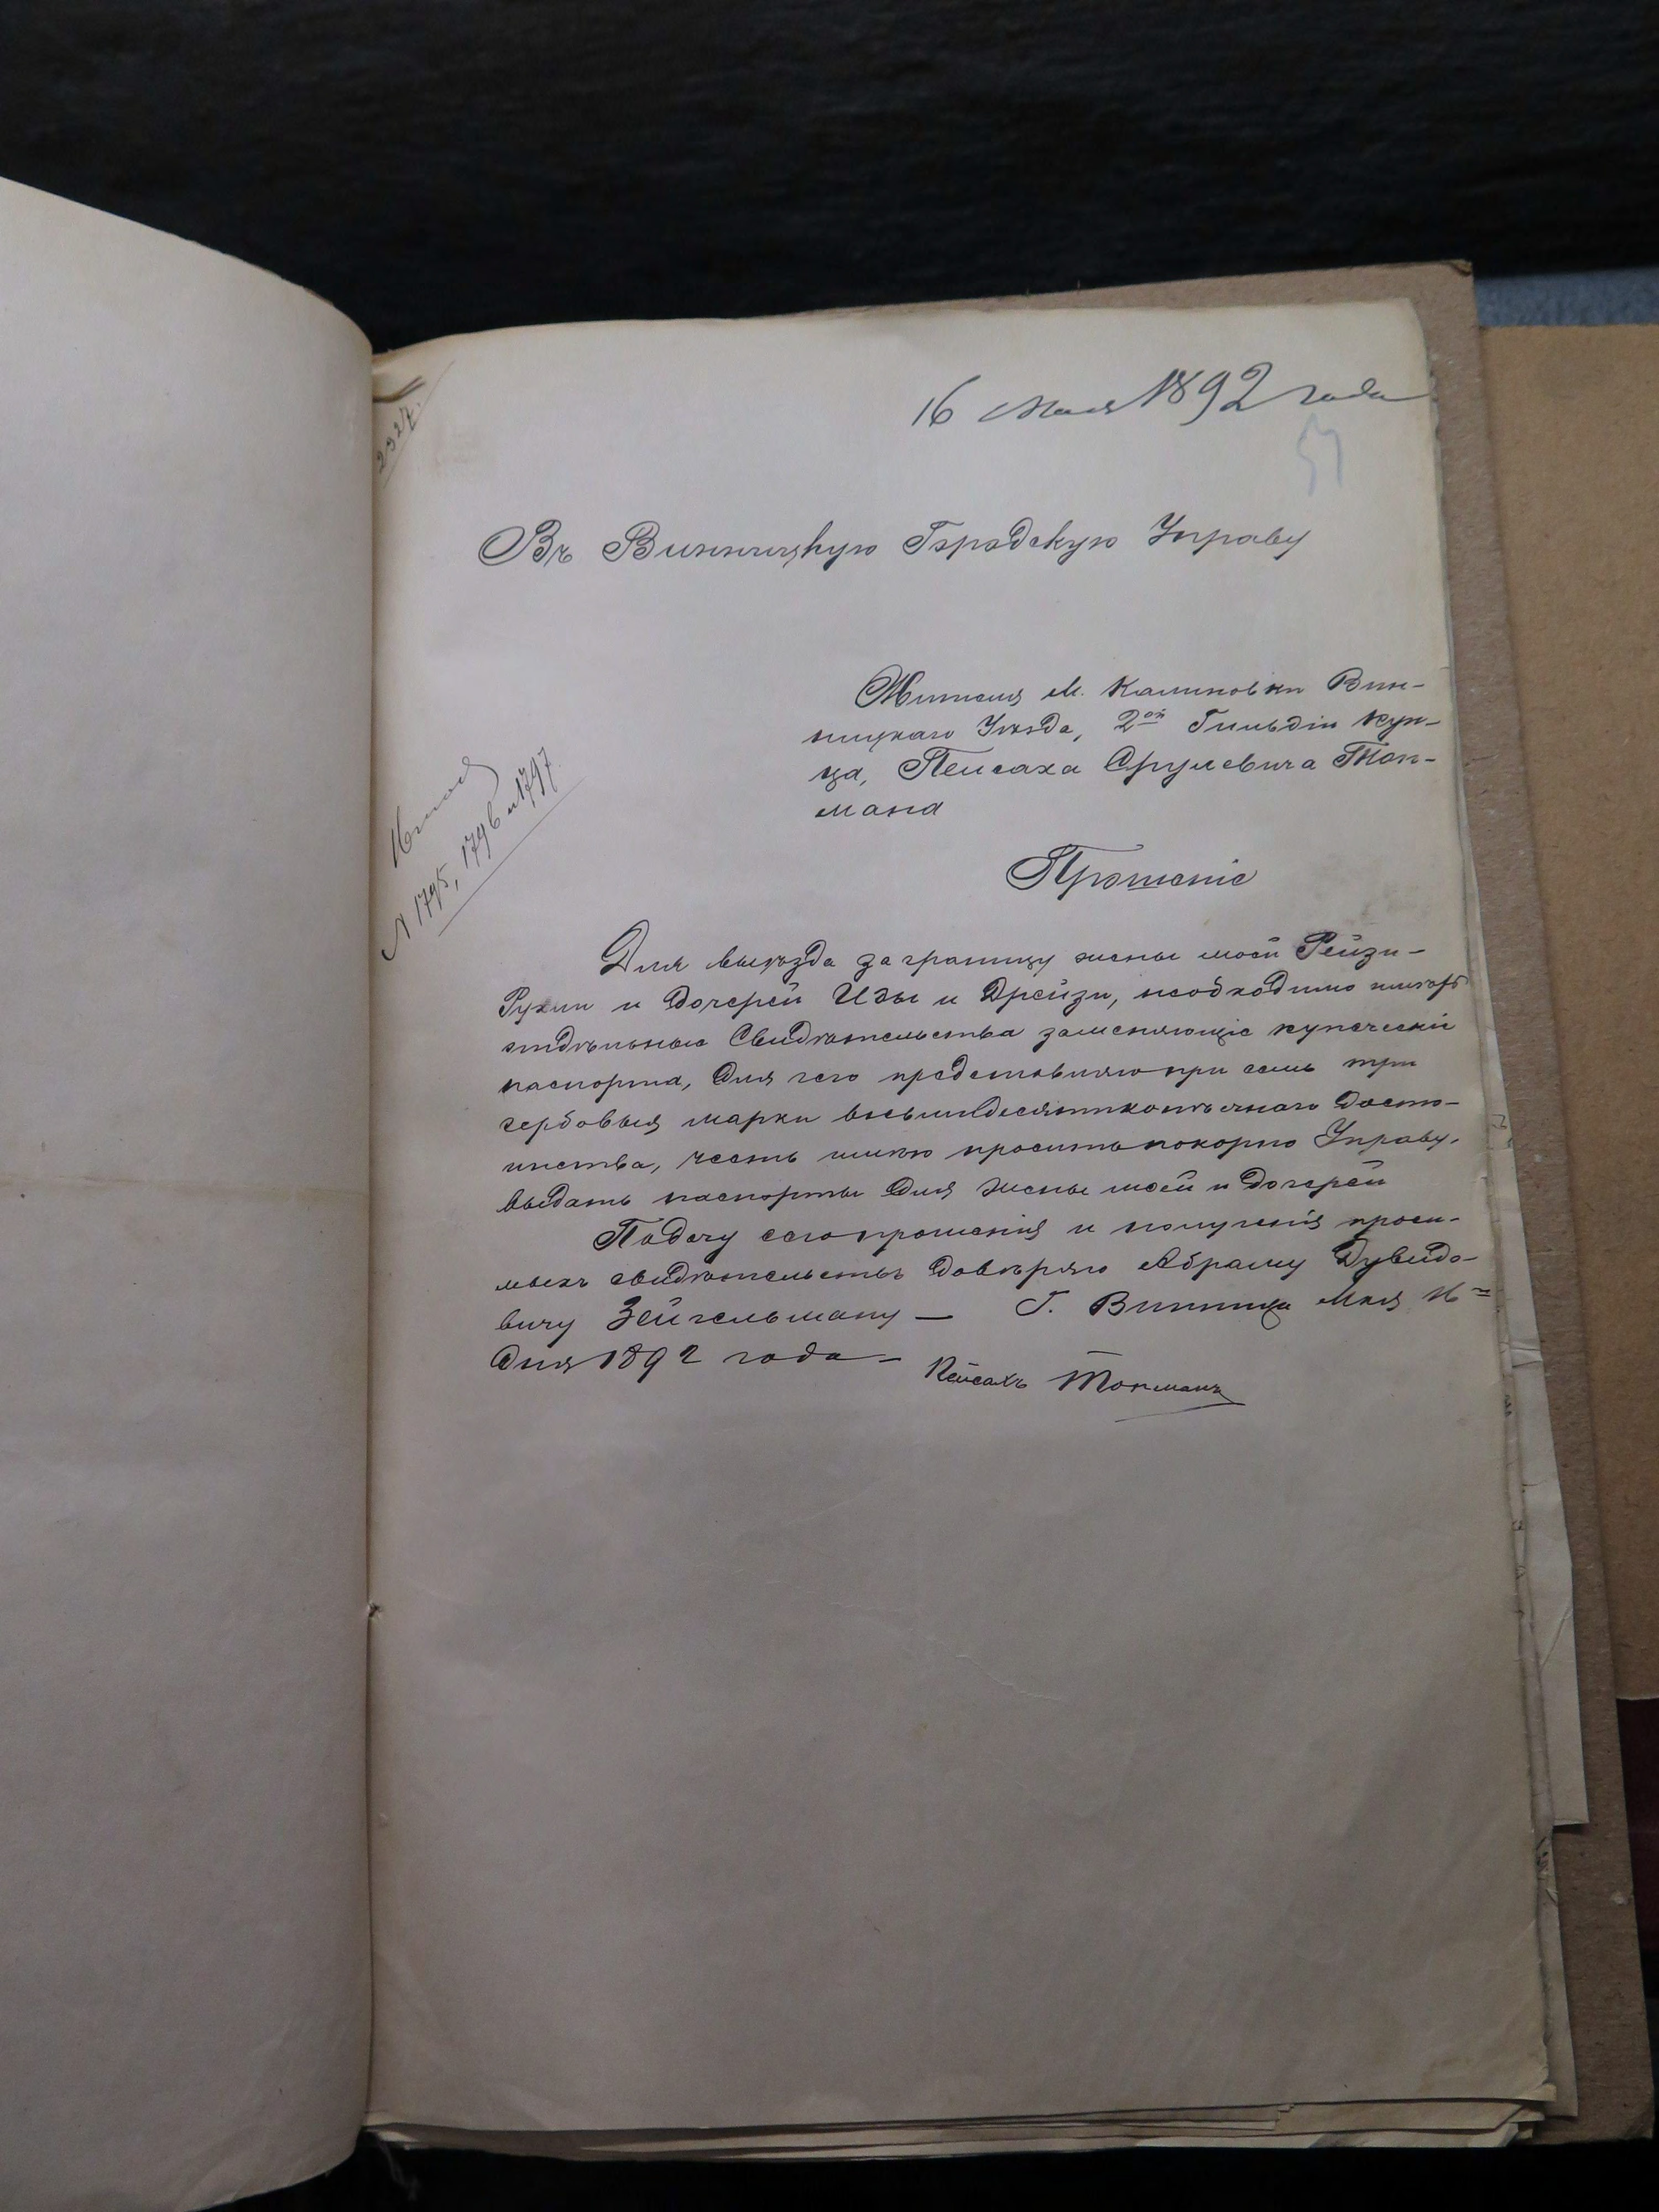 16 Мая 1892 года
51
2327.
Въ Винницкую Городскую Управу
Жителя М. Калиновки Вин-
ницкаго Уѣзда, 2ой Гильдіи куп-
ца, Пейсаха Срулевича Ток-
мана
16 мая
№ 1795, 1796 и 1797.
Прошеніе
Для выѣзда заграницу жены моей Рейзи-
Рухли и дочерей Изы и Дрейзи, необходимо имѣть
отдѣльныя Свидѣтельства заменяющіе купеческіе
паспорта, для чего представляю при семъ три
гербовыя марки восьмидесятикопѣечнаго досто-
инства, честь имѣю просить покорно Управу,
выдать паспорты для жены моей и дочерей
Подачу сего прошенія и полученія проси-
мыхъ свидѣтельствъ довѣряю Абраму Дувидо-
вичу Зейгельману — Г. Винница Мая 16=
дня 1892 года —
Пейсахъ Токманъ